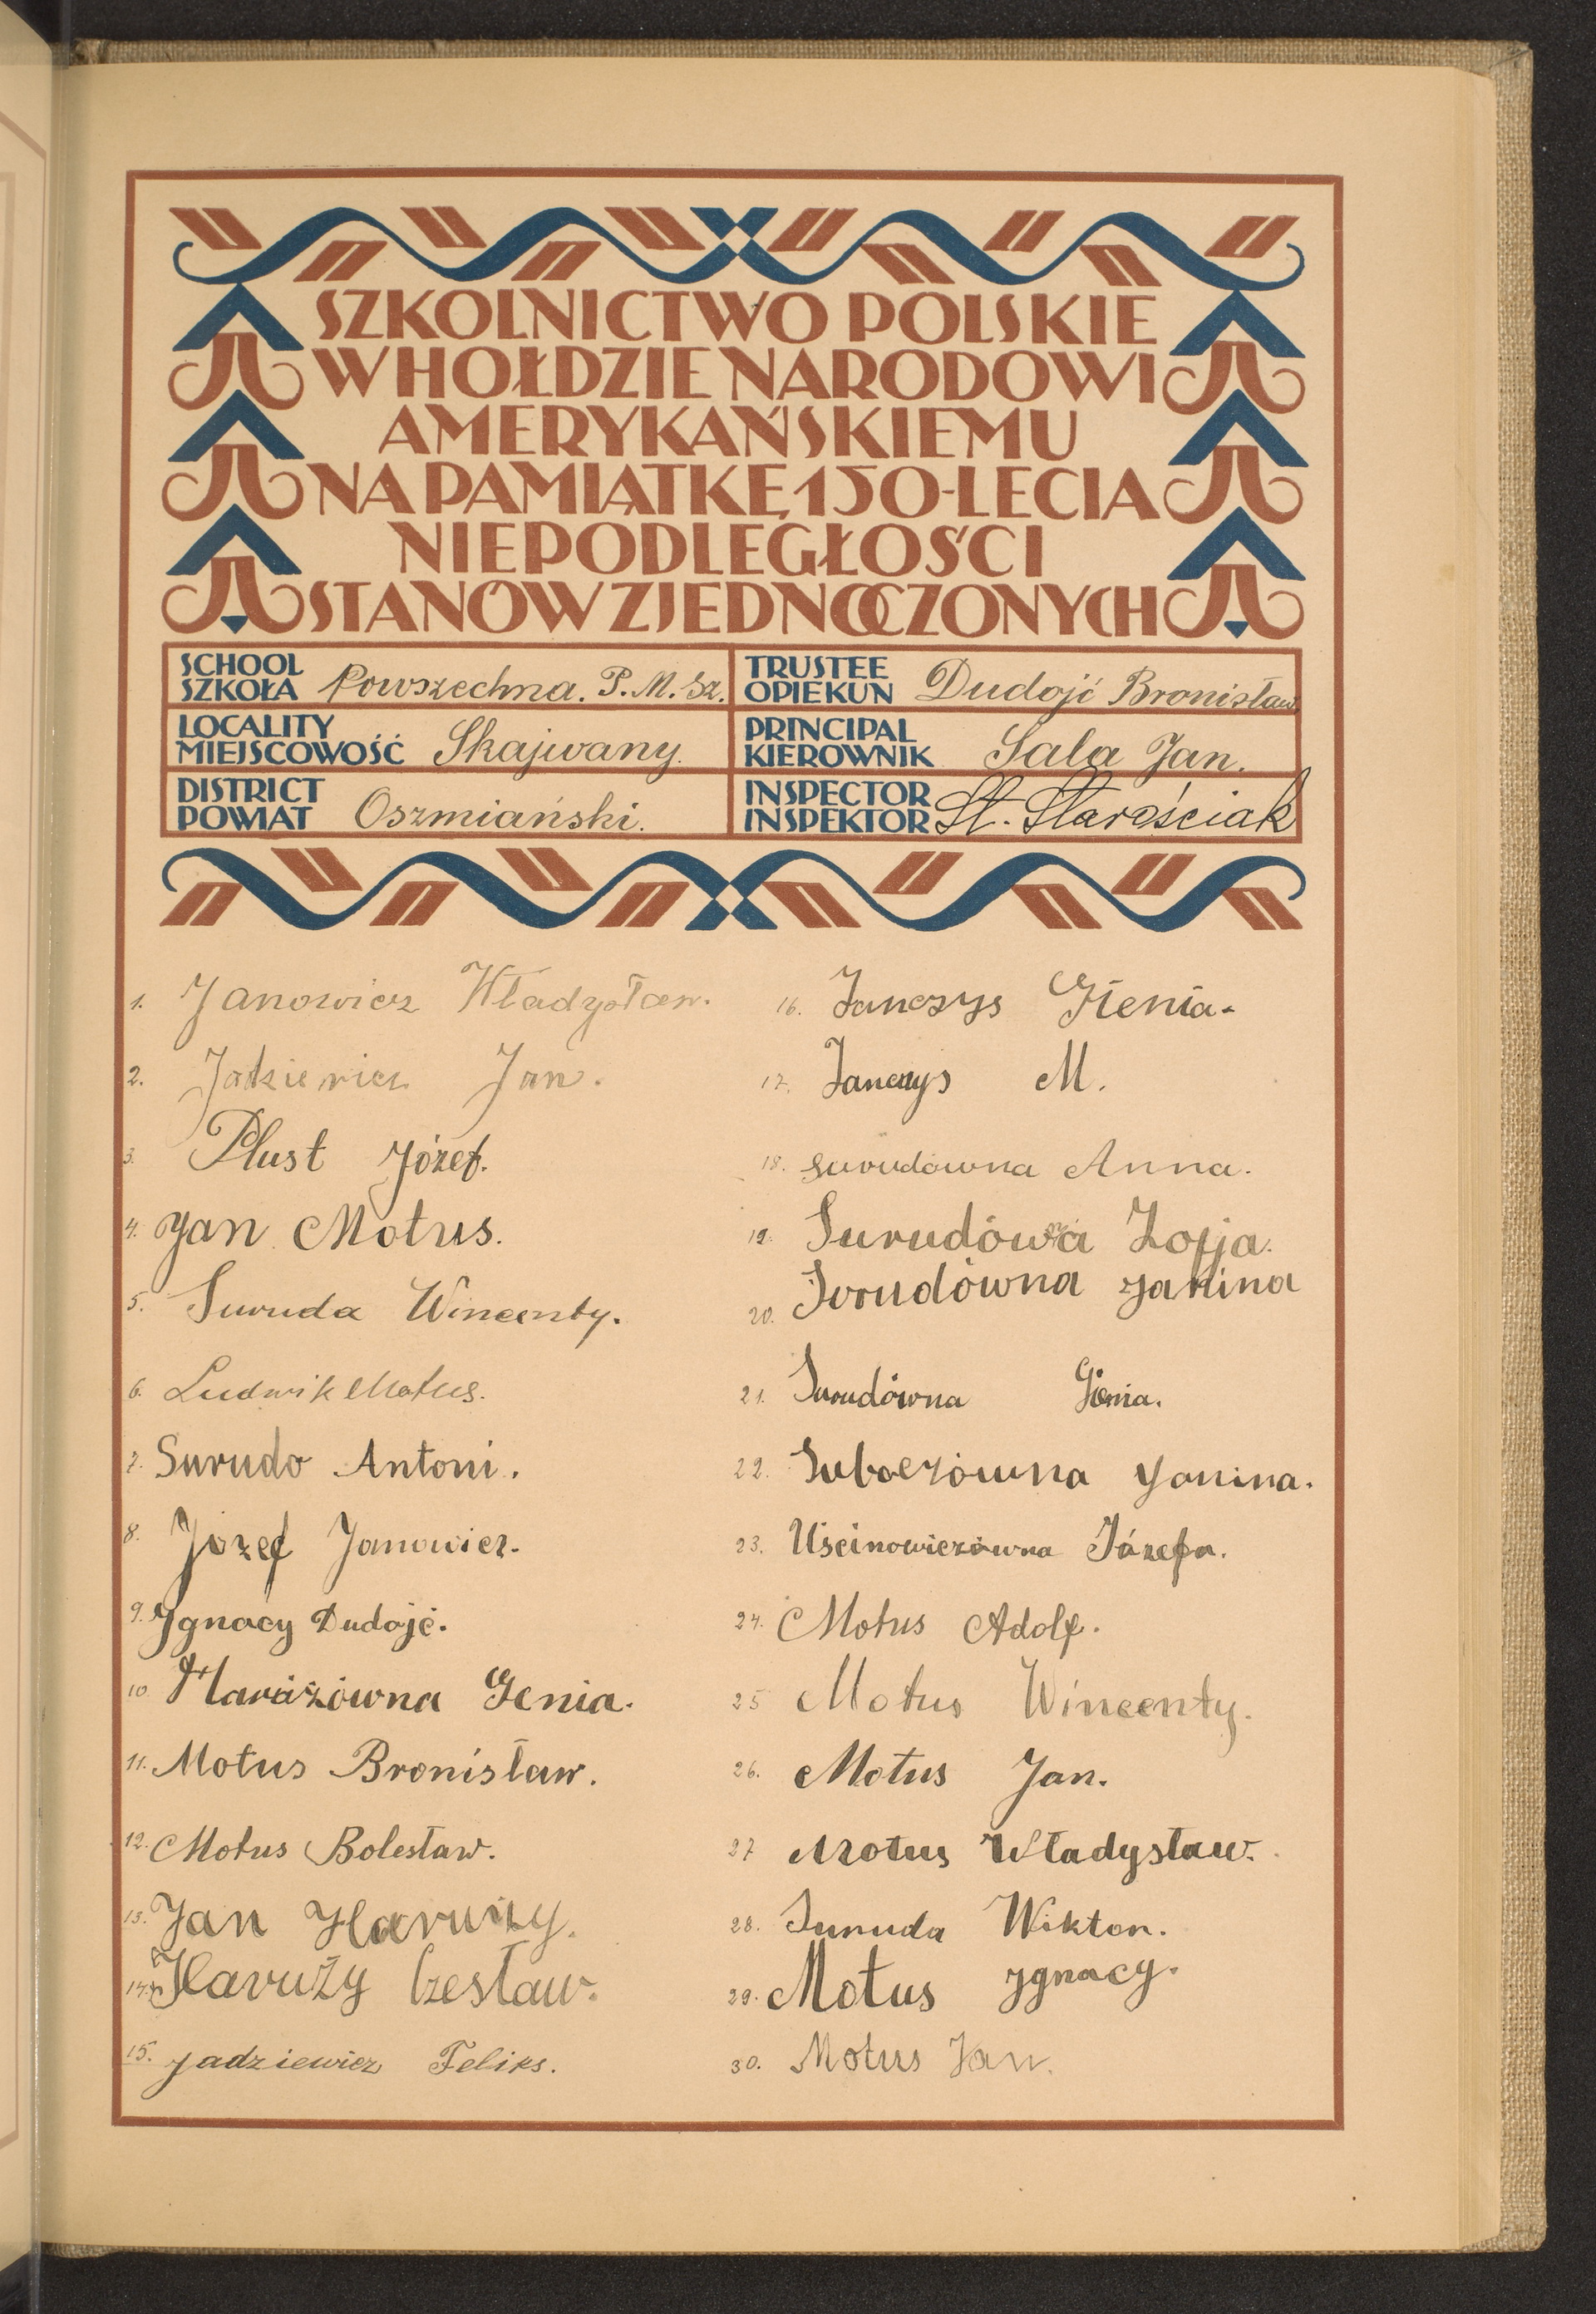 SZKOLNICTWO POLSKIE
W HOŁDZIE NARODOWI
AMERYKAŃSKIEMU
NA PAMIĄTKĘ 150-LECIA
NIEPODLEGŁOŚCI
STANÓW ZJEDNOCZONYCH
SCHOOL
SZKOŁA Powszechna. P. M. Sz.
TRUSTEE
OPIEKUN Dudojć Bronisław
LOCALITY
MIEJSCOWOŚĆ Skajwany.
PRINCIPAL
KIEROWNIK Sala Jan.
DISTRICT
POWIAT Oszmiański.
INSPECTOR
INSPEKTOR St. Starościak
1. Janowicz Władysław.
2. Jadziewicz Jan.
3. Plust Józef.
4. Jan Motus.
5. Suruda Wincenty.
6. Ludwik Motus.
7. Surudo Antoni.
8. Józef Janowicz.
9. Ignacy Dudojć.
10. Genia.
11. Motus Bronisław.
12. Motus Bolesław.
13. Jan Haruży.
14. Haruży Czesław.
15. Jadziewicz Feliks.
16. Janczys Gienia.
17. Janczys M.
18. Surudówna Anna.
19. Zofja.
20. Surudówna Janina
21. Surudówna Gienia.
22. Suboczówna Janina.
23. Uścinowiczówna Józefa.
24. Motus Adolf.
25 Motus Wincenty.
26. Motus Jan.
27 Motus Władysław.
28. Suruda Wiktor.
29. Motus Ignacy.
30. Motus Jan.